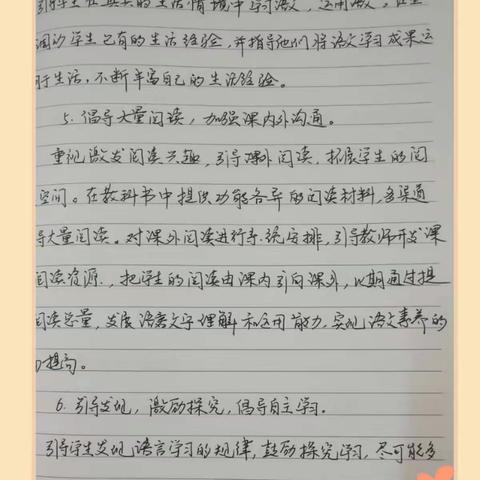 引导学生在真实的生活情境中学习语文，运用语文。注重
调动学生已有的生活经验，并指导他们将语文学习成果运
用于生活，不断丰富自己的生活经验。
5. 倡导大量阅读，加强课内外沟通。
重视激发阅读兴趣，引导课外阅读，拓展学生的阅
空间。在教科书中提供功能各异的阅读材料，多渠道
导大量阅读。对课外阅读进行系统安排，引导教师开发课
阅读资源，把学生的阅读由课内引向课外，以期通过提
阅读总量，发展语言文字理解和运用能力，实现语文素养的
提高。
6. 引导发现，激励探究，倡导自主学习。
引导学生发现语言学习的规律，鼓励探究学习，尽可能多